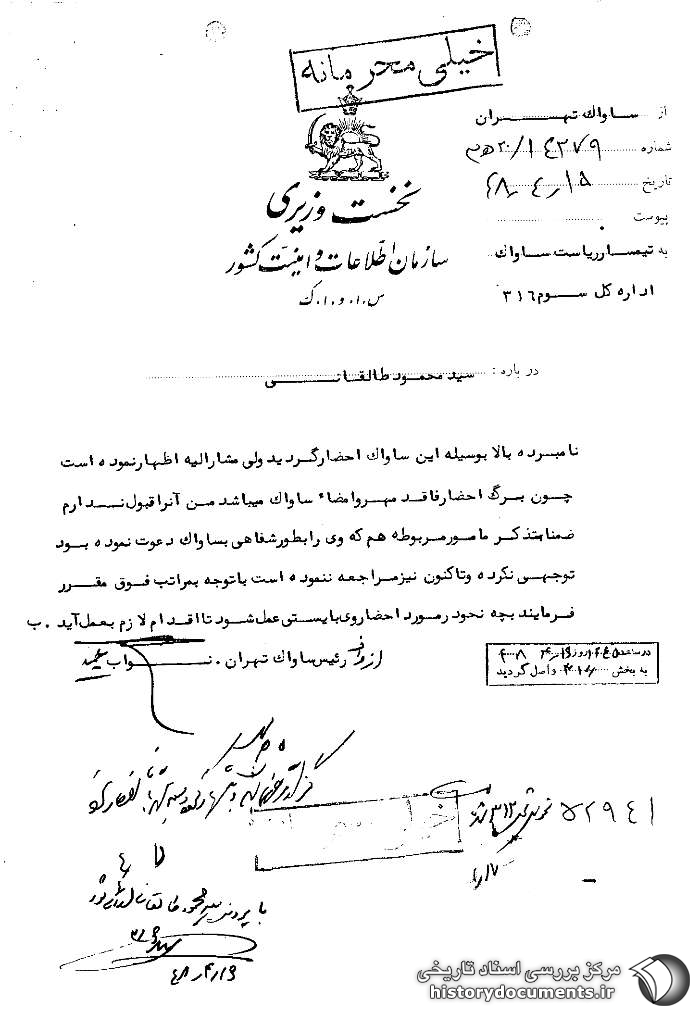 خیلی محرمانه
از ساواك تهران
شماره ۱۴۲۷۹/ ۲۰ ه‍ م
تاریخ ۴۸٫۴٫۱۵
پیوست
به تیمسار ریاست ساواك
اداره کل سوم ۳۱۶
نخست وزیری
سازمان اطلاعات و امنیت کشور
س.ا.و.ا.ک
درباره : سید محمود طالقانی
نامبرده بالا بوسیله این ساواك احضار گردید ولی مشارالیه اظهار نموده است
چون برگ احضار فاقد مهر و امضاء ساواك میباشد من آنرا قبول ندارم
ضمنا بتذکر مامور مربوطه هم که وی را بطور شفاهی بساواك دعوت نموده بود
توجهی نکرده و تاکنون نیز مراجعه ننموده است با توجه بمراتب فوق مقرر
فرمایند بچه نحو در مورد احضار وی بایستی عمل شود تا اقدام لازم بعمل آید . ب
رئیس ساواك تهران . نواب
در ساعت روز
به بخش واصل گردید
خیلی محرمانه
۵۲۹۴۱
با پرونده سید محمود طالقانی
۴۸٫۴٫۱۶
مرکز بررسی اسناد تاریخی
historydocuments.ir